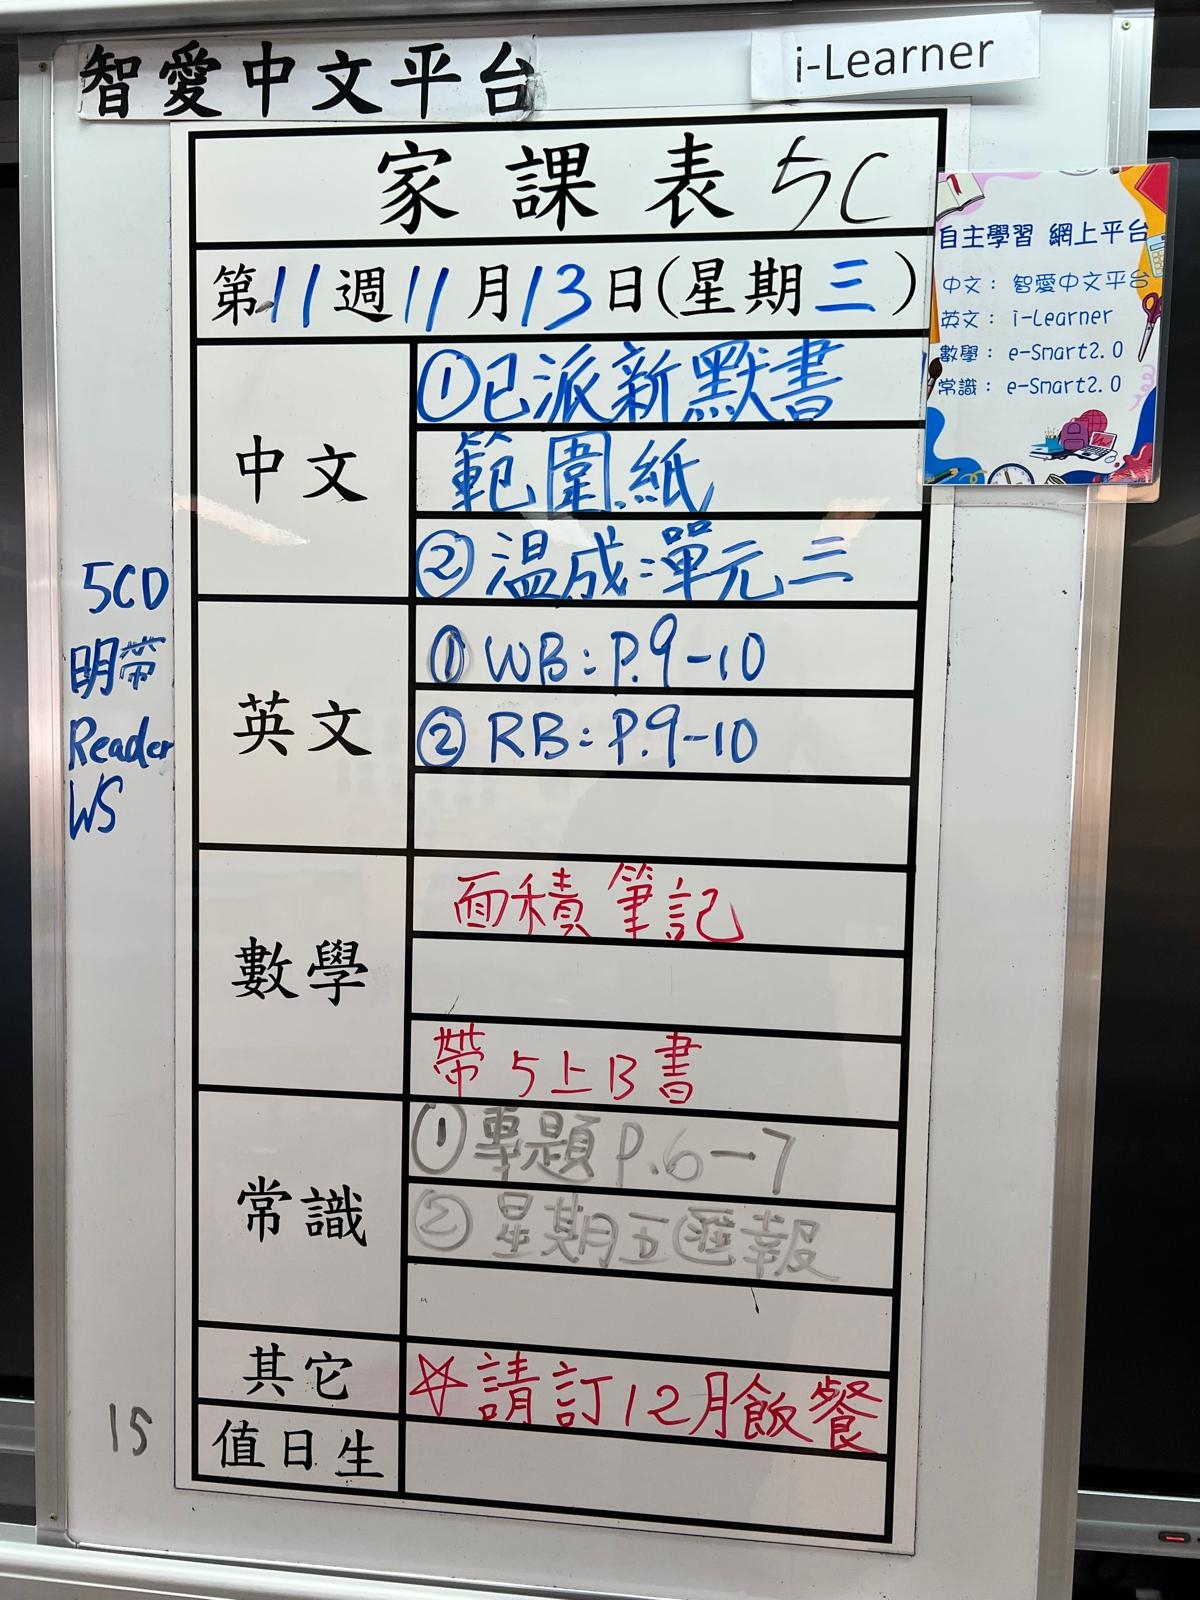 智愛中文平台
i-Learner
家課表 5C
第11週11月13日(星期三)
自主學習 網上平台
中文： 智愛中文平台
英文： i-Learner
數學： e-Smart2.0
常識： e-Smart2.0
中文
①已派新默書
範圍紙
②溫成:單元三
5CD
明帶
Reader
WS
英文
①WB:P.9-10
②RB:P.9-10
數學
面積筆記
帶5上B書
常識
①專題P.6-7
②星期五匯報
其它
☆請訂12月飯餐
15
值日生